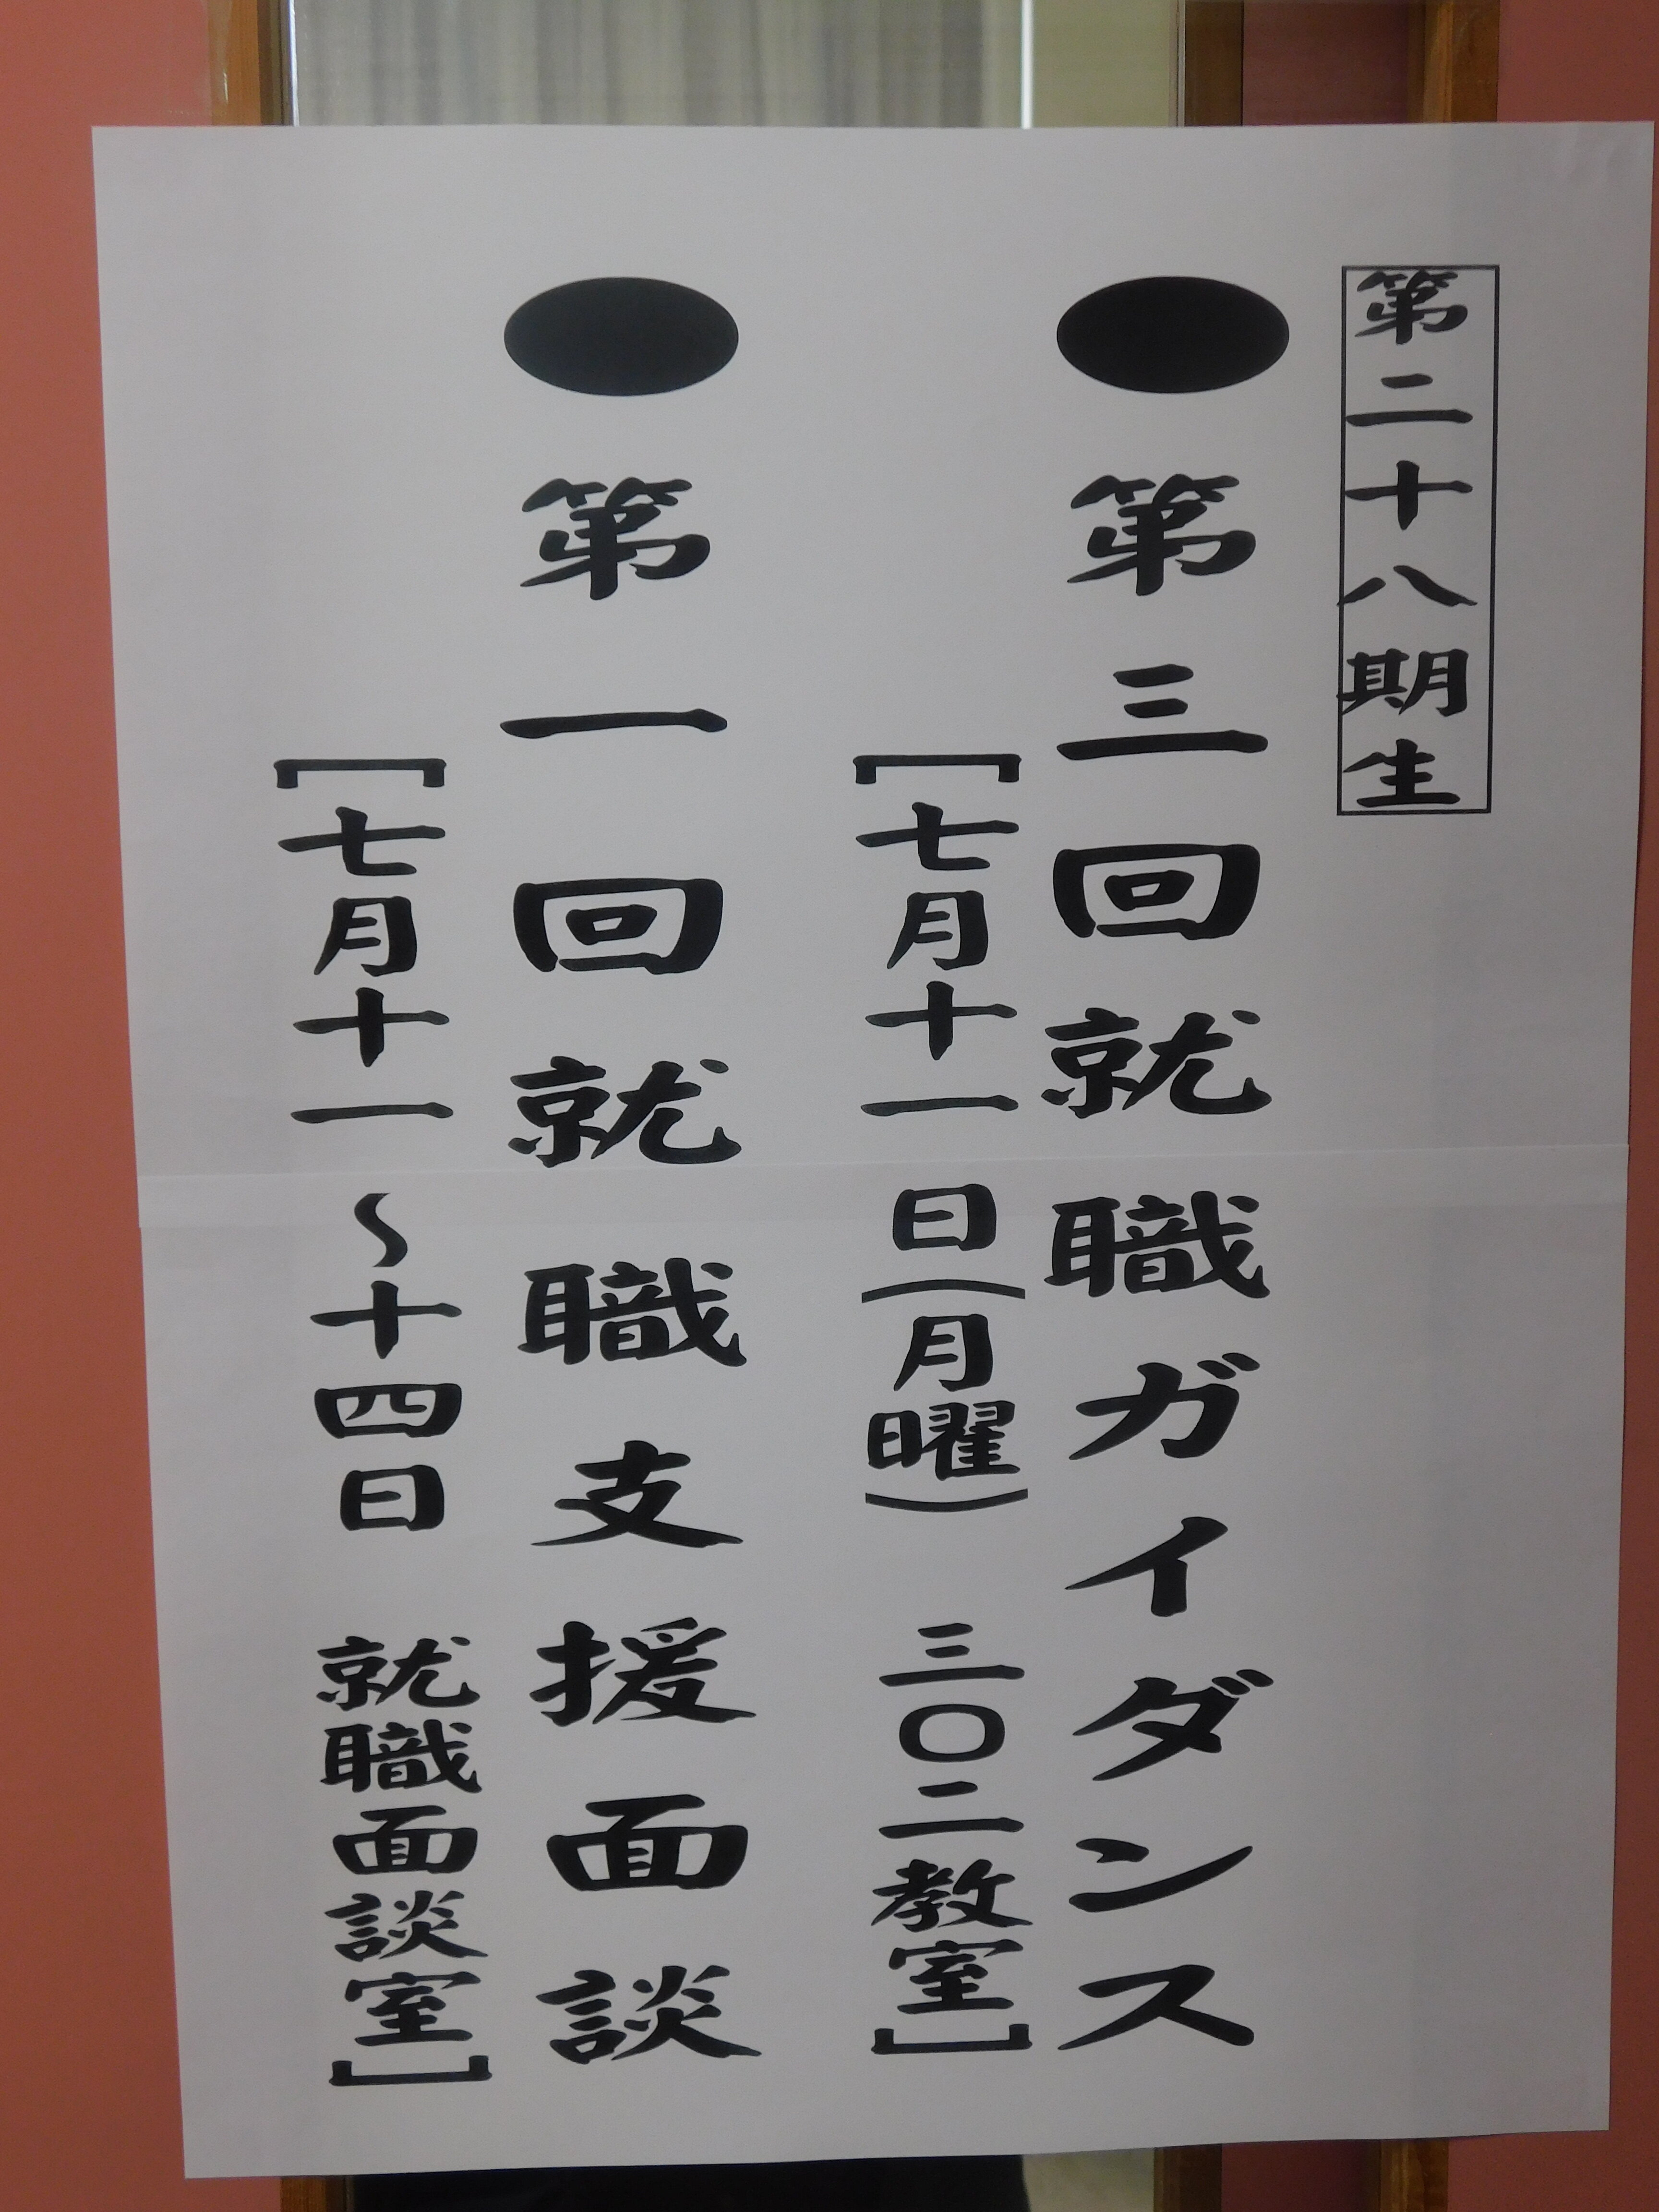 第二十八期生
●第三回就職ガイダンス
[七月十一日(月曜) 三〇二教室]
●第一回就職支援面談
[七月十一~十四日 就職面談室]